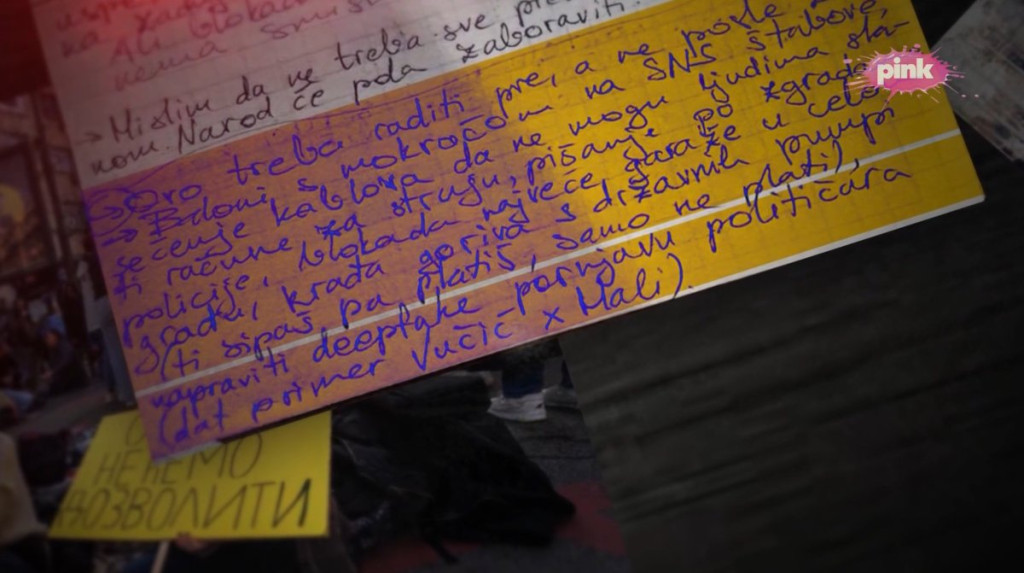 Ali
nema smis
→ Mislim da ne treba sve pre
nom. Narod će pola zaboraviti.
→ Ovo treba raditi pre, a ne posle
→ Baloni s mokraćom na SNS štabove,
sečenje kablova da ne mogu ljudima sla-
ti račune za struju, pišanje po zgrad
policije, blokada najveće garaže u celom
gradu, krađa goriva s državnih pumpi
(ti sipaš pa platiš, samo ne plati),
napraviti deepfake pornjavu političara
(dat primer Vučić x Mali).
pink
НЕЋЕМО
ДОЗВОЛИТИ